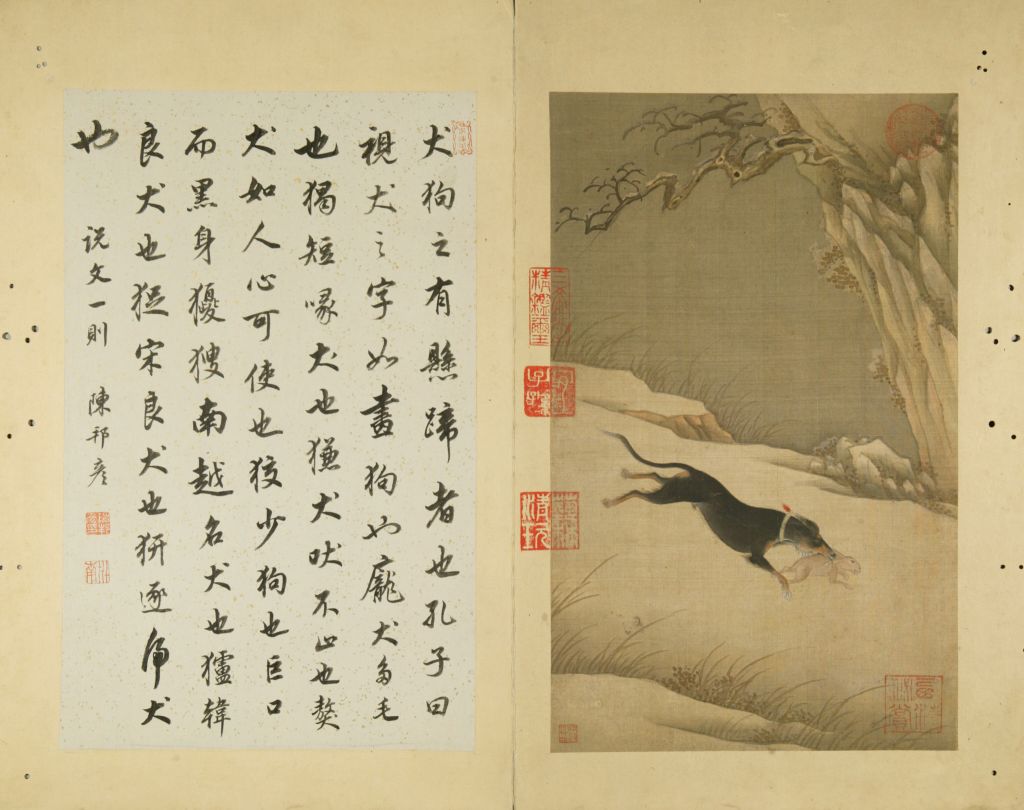 犬狗之有懸蹄者也孔子曰
視犬之字如畫狗也龐犬多毛
也猲短喙犬也㺌犬吠不止也獒
犬如人心可使也狡少狗也巨口
而黑身獿獀南越名犬也獹韓
良犬也宋良犬也逐虎犬
也
說文一則
陳邦彥
三希堂精鑑璽
宜子孫